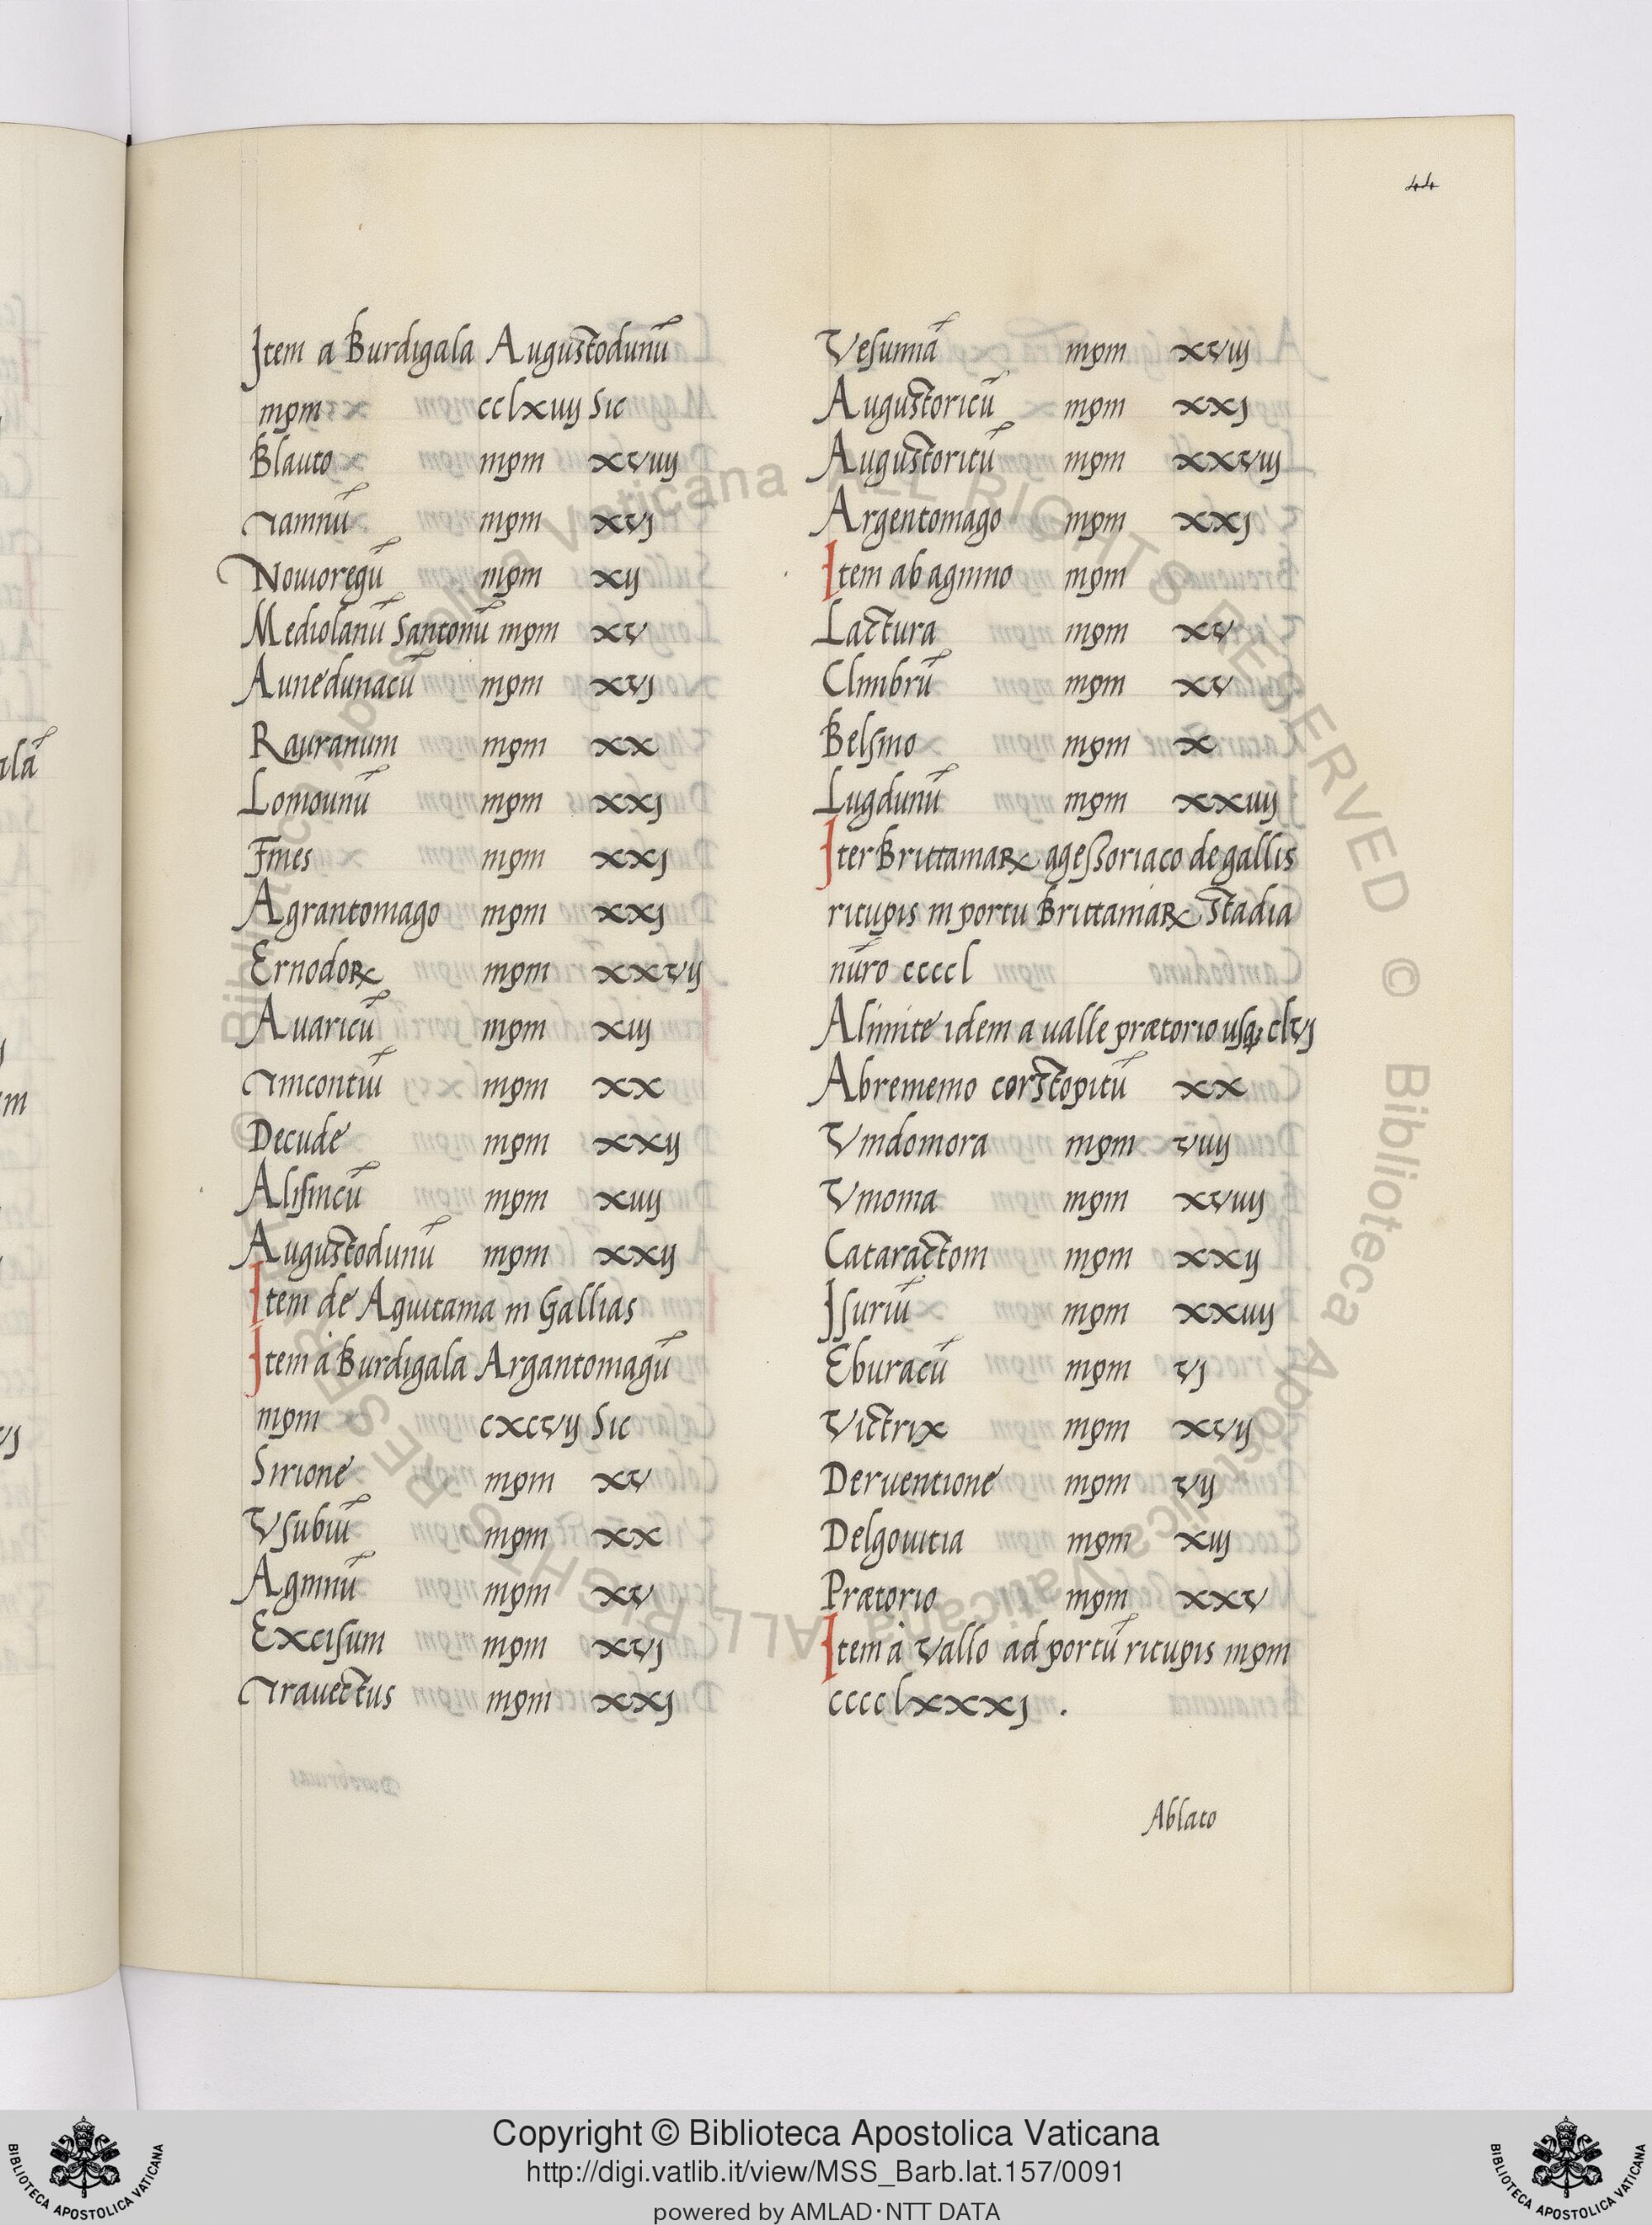 44
Item a Burdigala Augustodunū
mpm cclxiiij Sic
Blauto mpm xviiij
Tamnū mpm xvj
Nouioregū mpm xij
Mediolanū Santonū mpm xv
Aunedunacū mpm xvj
Rauranum mpm xx
Lomounū mpm xxj
Fines mpm xxj
Agrantomago mpm xxj
Ernodoꝝ mpm xxvij
Auaricū mpm xiij
Tincontiū mpm xx
Decude mpm xxij
Alisincū mpm xiiij
Augustodunū mpm xxij
Item de Aguitania in Gallias
Item à Burdigala Argantomagū
mpm cxcvij Sic
Sirione mpm xv
Vsubiū mpm xx
Aginnū mpm xv
Excisum mpm xvj
Traiectus mpm xxj
Vesunnā mpm xviij
Augustoricū mpm xxj
Augustoritū mpm xxviij
Argentomago mpm xxj
Item ab aginno mpm
Lactura mpm xv
Climbrū mpm xv
Belsino mpm x
Lugdunū mpm xxiiij
Iter Brittaniaꝝ agessoriaco de gallis
ritupis in portu Brittaniaꝝ Stadia
nūro ccccl
Alimite idem a ualle prætorio usqꝫ clvj
Abrememo corstopitū xx
Vindomora mpm viiij
Vinonia mpm xviiij
Cataractoni mpm xxij
Isuriū mpm xxiiij
Eburacū mpm vj
Victrix mpm xvij
Deruentione mpm vij
Delgouitia mpm xiij
Prætorio mpm xxv
Item à Vallo ad portū ritupis mpm
cccclxxxj .
Ablato
Copyright © Biblioteca Apostolica Vaticana
http://digi.vatlib.it/view/MSS_Barb.lat.157/0091
powered by AMLAD·NTT DATA